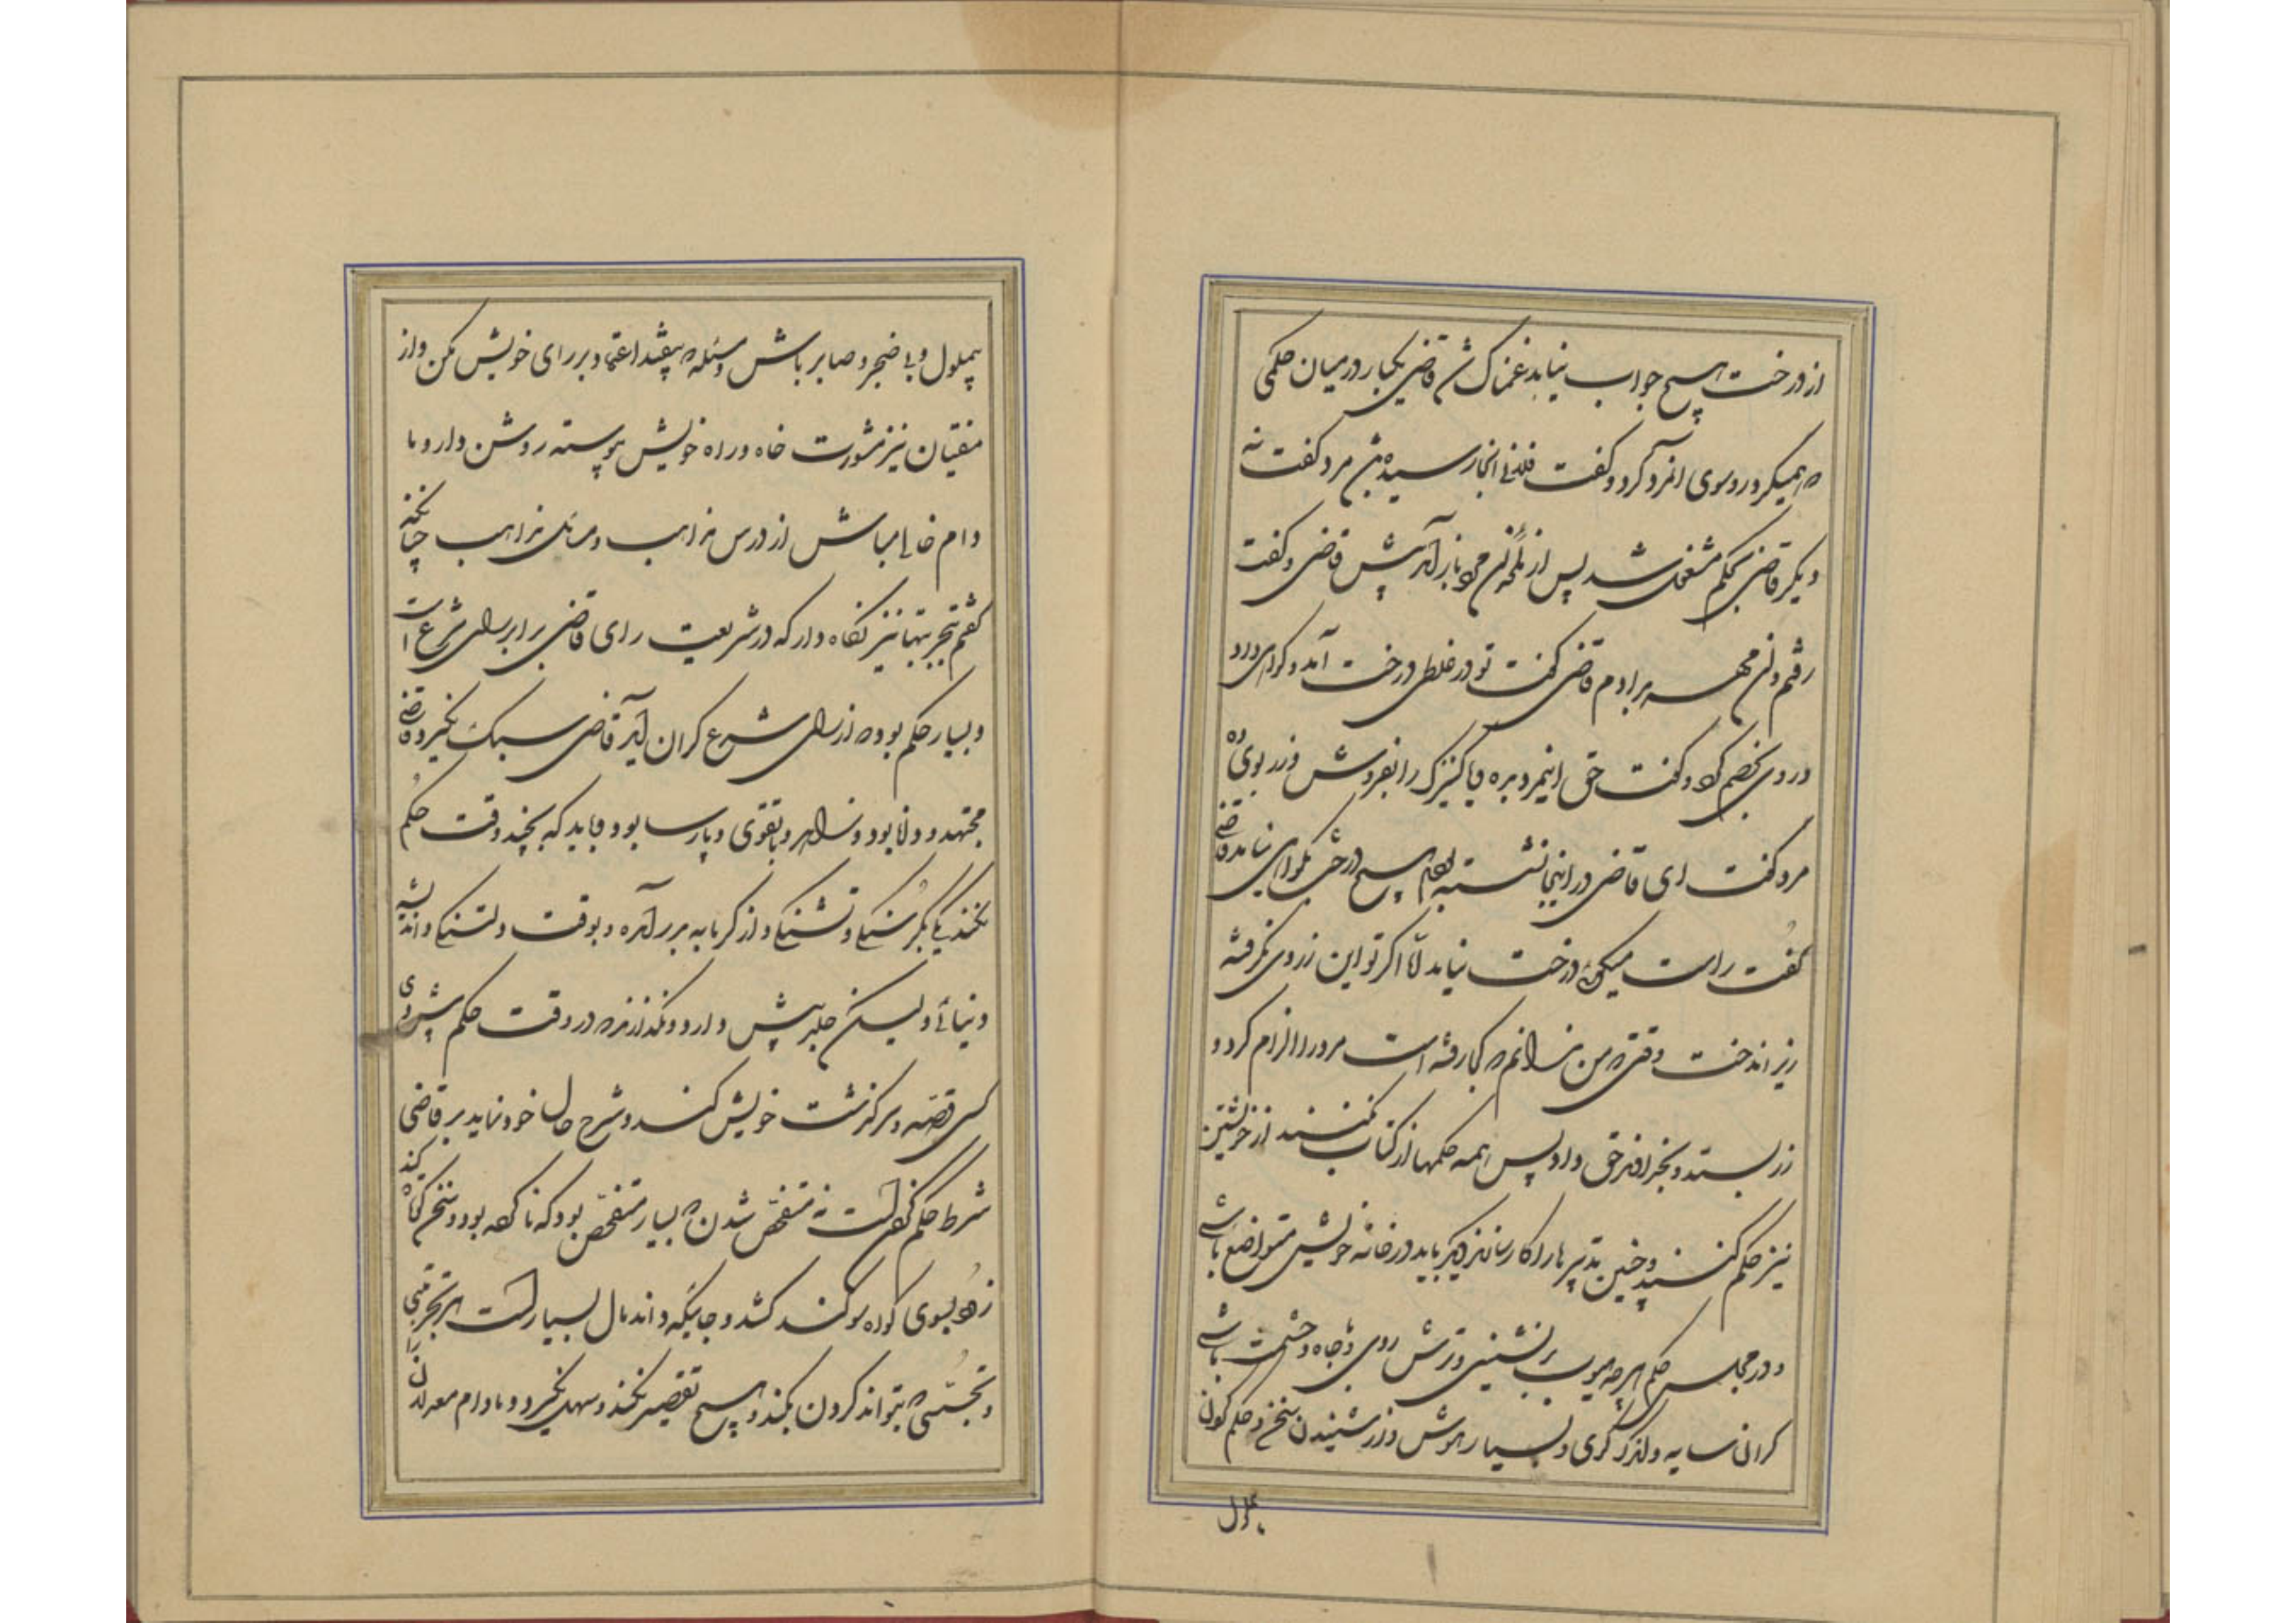 از درخت هیچ جواب نیاید غمناک شد قاضی یکبار در میان حکمی
که همیکرد روسوی انمرد کرد و گفت فلانی انجا رسیده باشد مرد گفت نه
دیگر قاضی بحکم مشغول شد پس از مرد باز آمد پیش قاضی و گفت
رفتم و آن مهر بدادم قاضی گفت تو در غلطی درخت آمد و گواهی داد
و روی بخصم کرد و گفت حق اینمرد بده یا کنیزک را بفروش و زر بوی ده
مرد گفت ای قاضی در اینجا نشسته ام هیچ درختی بگواهی نیامد قاضی
گفت راست میگوئی درخت نیامد اما اگر تو این زر وی نگرفته
زیر اندرخت وقتی که من کجا رفته است مرد را الزام کرد و
زر بستد و بخداوند حق داد پس همه حکمها از کتاب نکنند از خویشتن
نیز حکم کنند و چنین تدبیرها را کار دیگر باید در خانه خویش متواضع باشی
و در مجلس حکم هر چه مهیب تر نشینی و ترش روی و با جاه و حشمت باشی
گران سایه و اندک گوی و بسیار هوش و از شنیدن سخن و حکم کردن
بملول
بملول و بی ضجر و صابر باش و مسئله که بیفتد اعتماد بر رای خویش مکن و از
مفتیان نیز مشورت خواه و راه خویش پیوسته روشن دار و ما
دام خالی مباش از درس مذاهب و مسائل مذاهب چنانکه
گفتم تجربتها نیز نگاه دار که در شریعت رای قاضی برابر رای شرع است
و بسیار حکم بود که از رای شرع گران آید قاضی سبک بگیرد و قاضی
مجتهد و دانا بود و زاهد و با تقوی و پارسا بود و باید که بچند وقت حکم
نکند یکی بگرسنگی و تشنگی و از گرمابه بر آمده و بوقت دلتنگی و اندیشه
دنیائی و لیکن جلد پیش دارد و نگذارد که در وقت حکم پیش وی
کسی قصه و سرگذشت خویش کند و شرح حال خود نماید بر قاضی
شرط حکم کردنست نه متفحص شدن که بسیار متفحص بود که نا کرده بود و سخن کوتاه کند
زود بسوی گواه و سوگند کشد و جائیکه داند مال بسیار است هر تجربتی
و تجسسی که بتواند کردن بکند و هیچ تقصیر نکند و سهل نگیرد و مادام معدلان را